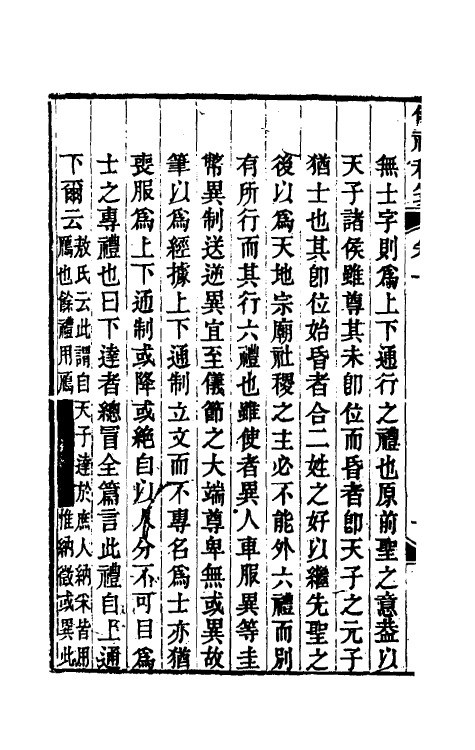 無士字則爲上下通行之禮也原前聖之意葢以
天子諸侯雖尊其未卽位而昏者卽天子之元子
猶士也其卽位始昏者合二姓之好以繼先聖之
後以爲天地宗廟社稷之主必不能外六禮而別
有所行而其行六禮也雖使者異人車服異等圭
幣異制送逆異宜至儀節之大端尊卑無或異故
筆以爲經據上下通制立文而不專名爲士亦猶
喪服爲上下通制或降或絕自以人分不可目爲
士之專禮也曰下達者總冒全篇言此禮自上通
下爾云
敖氏云此謂自天子達於庶人納采皆用
鴈也餘禮用鴈惟納徵或異此